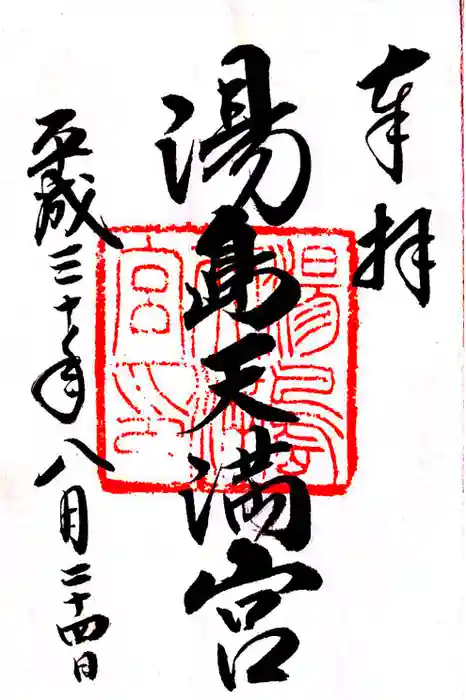 奉拝
湯島天満宮
平成三十年八月二十四日
湯島
天満
宮印